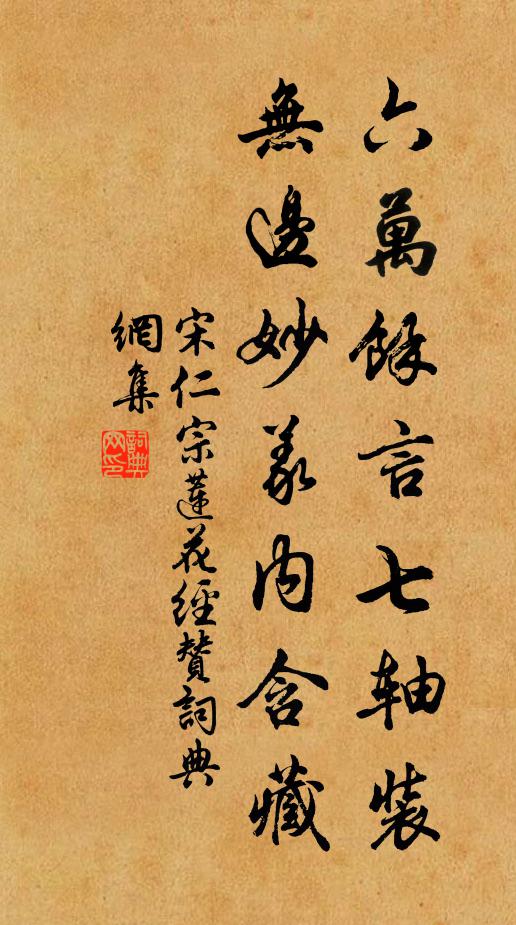 六萬餘言七軸裝
無邊妙義內含藏
宋仁宗蓮花經贊詞典
網集
詞典網印